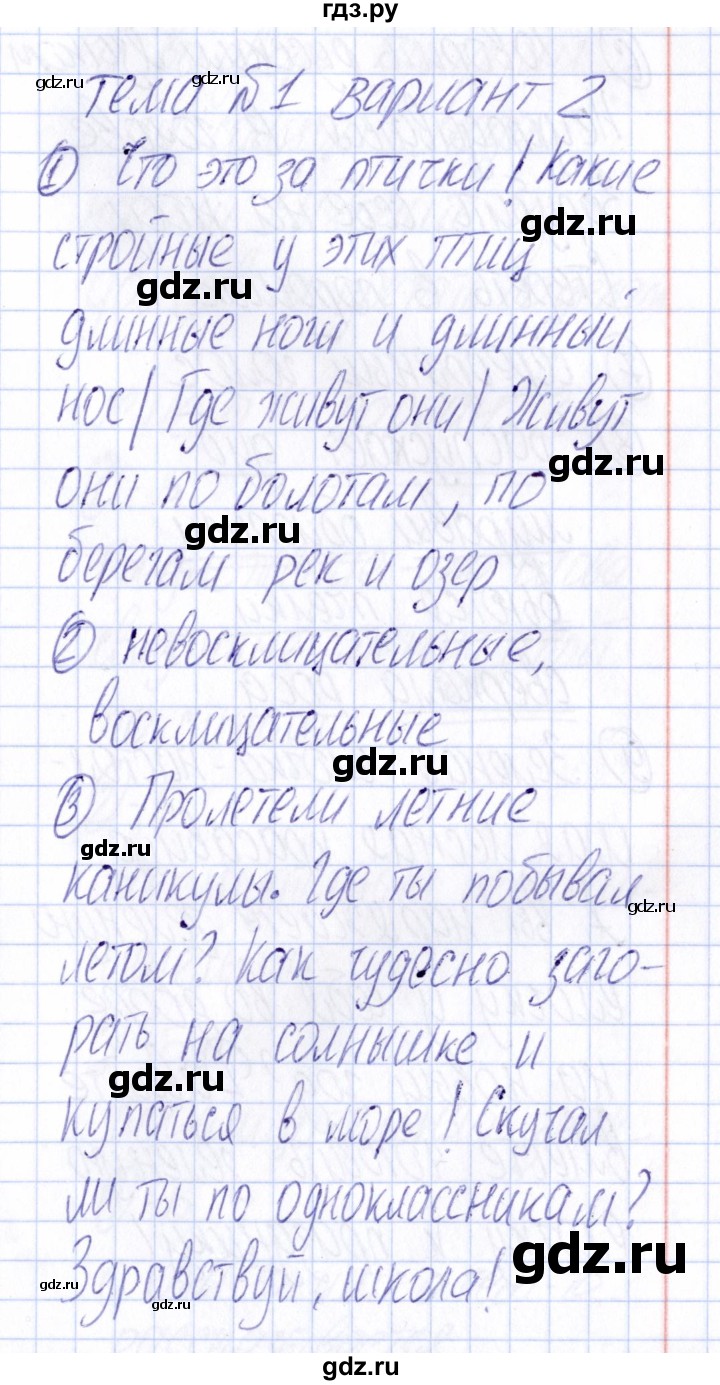 гдз.ру
gdz.ru gdz.ru
Тема №1 вариант 2
① Что это за птички! Какие
gdz.ru
стройные у этих птиц
gdz.ru
длинные ноги и длинный
нос| Где живут они| Живут
gdz.ru
они по болотам, по
gdz.ru
берегам рек и озер
② невосклицательные,
восклицательные
gdz.ru
③ Пролетели летние
gdz.ru
каникулы. Где ты побывал
gdz.ru
летом? Как чудесно заго-
рать на солнышке и
gdz.ru
купаться в море! Скучал
ли ты по одноклассникам?
gdz.ru
Здравствуй, школа!
gdz.ru gdz.ru
gdz.ru